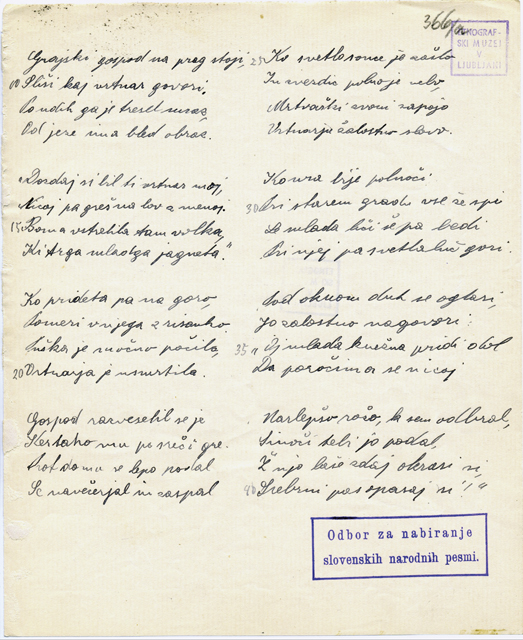 366/
ETNOGRAF-
SKI MUZEJ
V
LJUBLJANI
Grajski gospod na prag stoji,
10 Sliši kaj vrtnar govori,
ga je tresel mraz,
Od jeze ima bled obraz.
"Dozdaj si bil ti vrtnar moj,
Nicoj pa greš na lov z menoj.
15 Boma vstrelila tam volka,
Ki tirga mladga jagneta."
Ko prideta pa na goro,
Pomeri v njega z risanko.
Puška je močno počila,
20 Vrtnarja je usmrtila.
Gospod razveselil se je
Ker tako mu po sreči gre.
Prot domu se lepo podal
Se navečerjal in zaspal
25 Ko svetlo sonce je zašlo
In zvezdic polno je nebo,
Mrtvaški zvoni zapojo
Vrtnarju žalostno slovo.
Ko ura bije polnoči
30 Pri starem gradu vse že spi
Le mlada hči še pa bedi
Pri njej pa svetla luč gori.
Pod oknom duh se oglasi,
Jo žalostno nagovori:
35 "Oj mlada knežna pridi dol
Da poročima se nicoj
Narlepšo rožo, k sem odbral,
Sinoči tebi jo podal,
Ž njo lase zdaj okrasi si,
40 Srebrni pas opasaj si!"
Odbor za nabiranje
slovenskih narodnih pesmi.